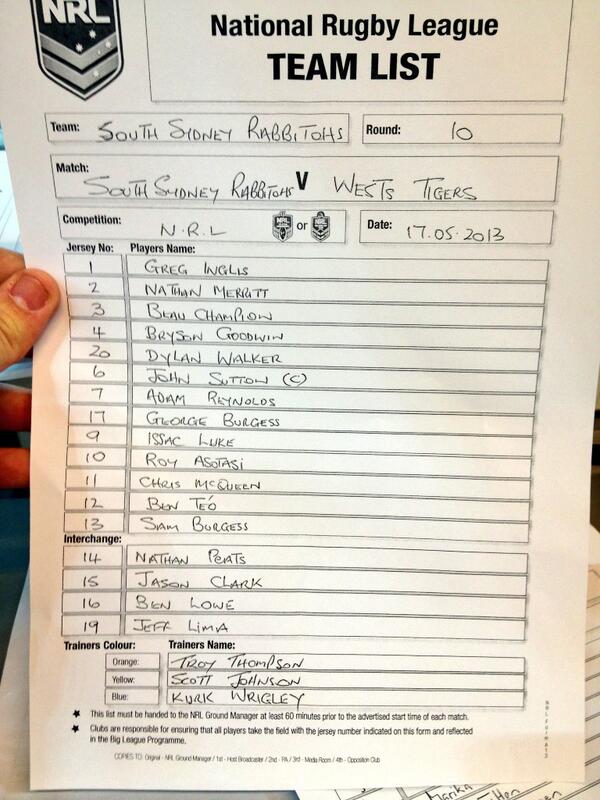 NRL
National Rugby League
TEAM LIST
Team: SOUTH SIDNEY RABBITOHS Round: 10
Match: SOUTH SYDNEY RABBITOHS V WESTS TIGERS
Competition: N.R.L or Date: 17.05.2013
Jersey No: Players Name:
1 GREG INGLIS
2 NATHAN MERRITT
3 BEAU CHAMPION
4 BRYSON GOODWIN
20 DYLAN WALKER
6 JOHN SUTTON (C)
7 ADAM REYNOLDS
17 GEORGE BURGESS
9 ISSAC LUKE
10 ROY ASOTASI
11 CHRIS MCQUEEN
12 BEN TE'O
13 SAM BURGESS
Interchange:
14 NATHAN PEATS
15 JASON CLARK
16 BEN LOWE
19 JEFF LIMA
Trainers Colour: Trainers Name:
Orange: TROY THOMPSON
Yellow: SCOTT JOHNSON
Blue: KURK WRIGLEY
★ This list must be handed to the NRL Ground Manager at least 60 minutes prior to the advertised start time of each match.
★ Clubs are responsible for ensuring that all players take the field with the jersey number indicated on this form and reflected
in the Big League Programme.
COPIES TO: Original - NRL Ground Manager / 1st - Host Broadcaster / 2nd - PA / 3rd - Media Room / 4th - Opposition Club
Marika